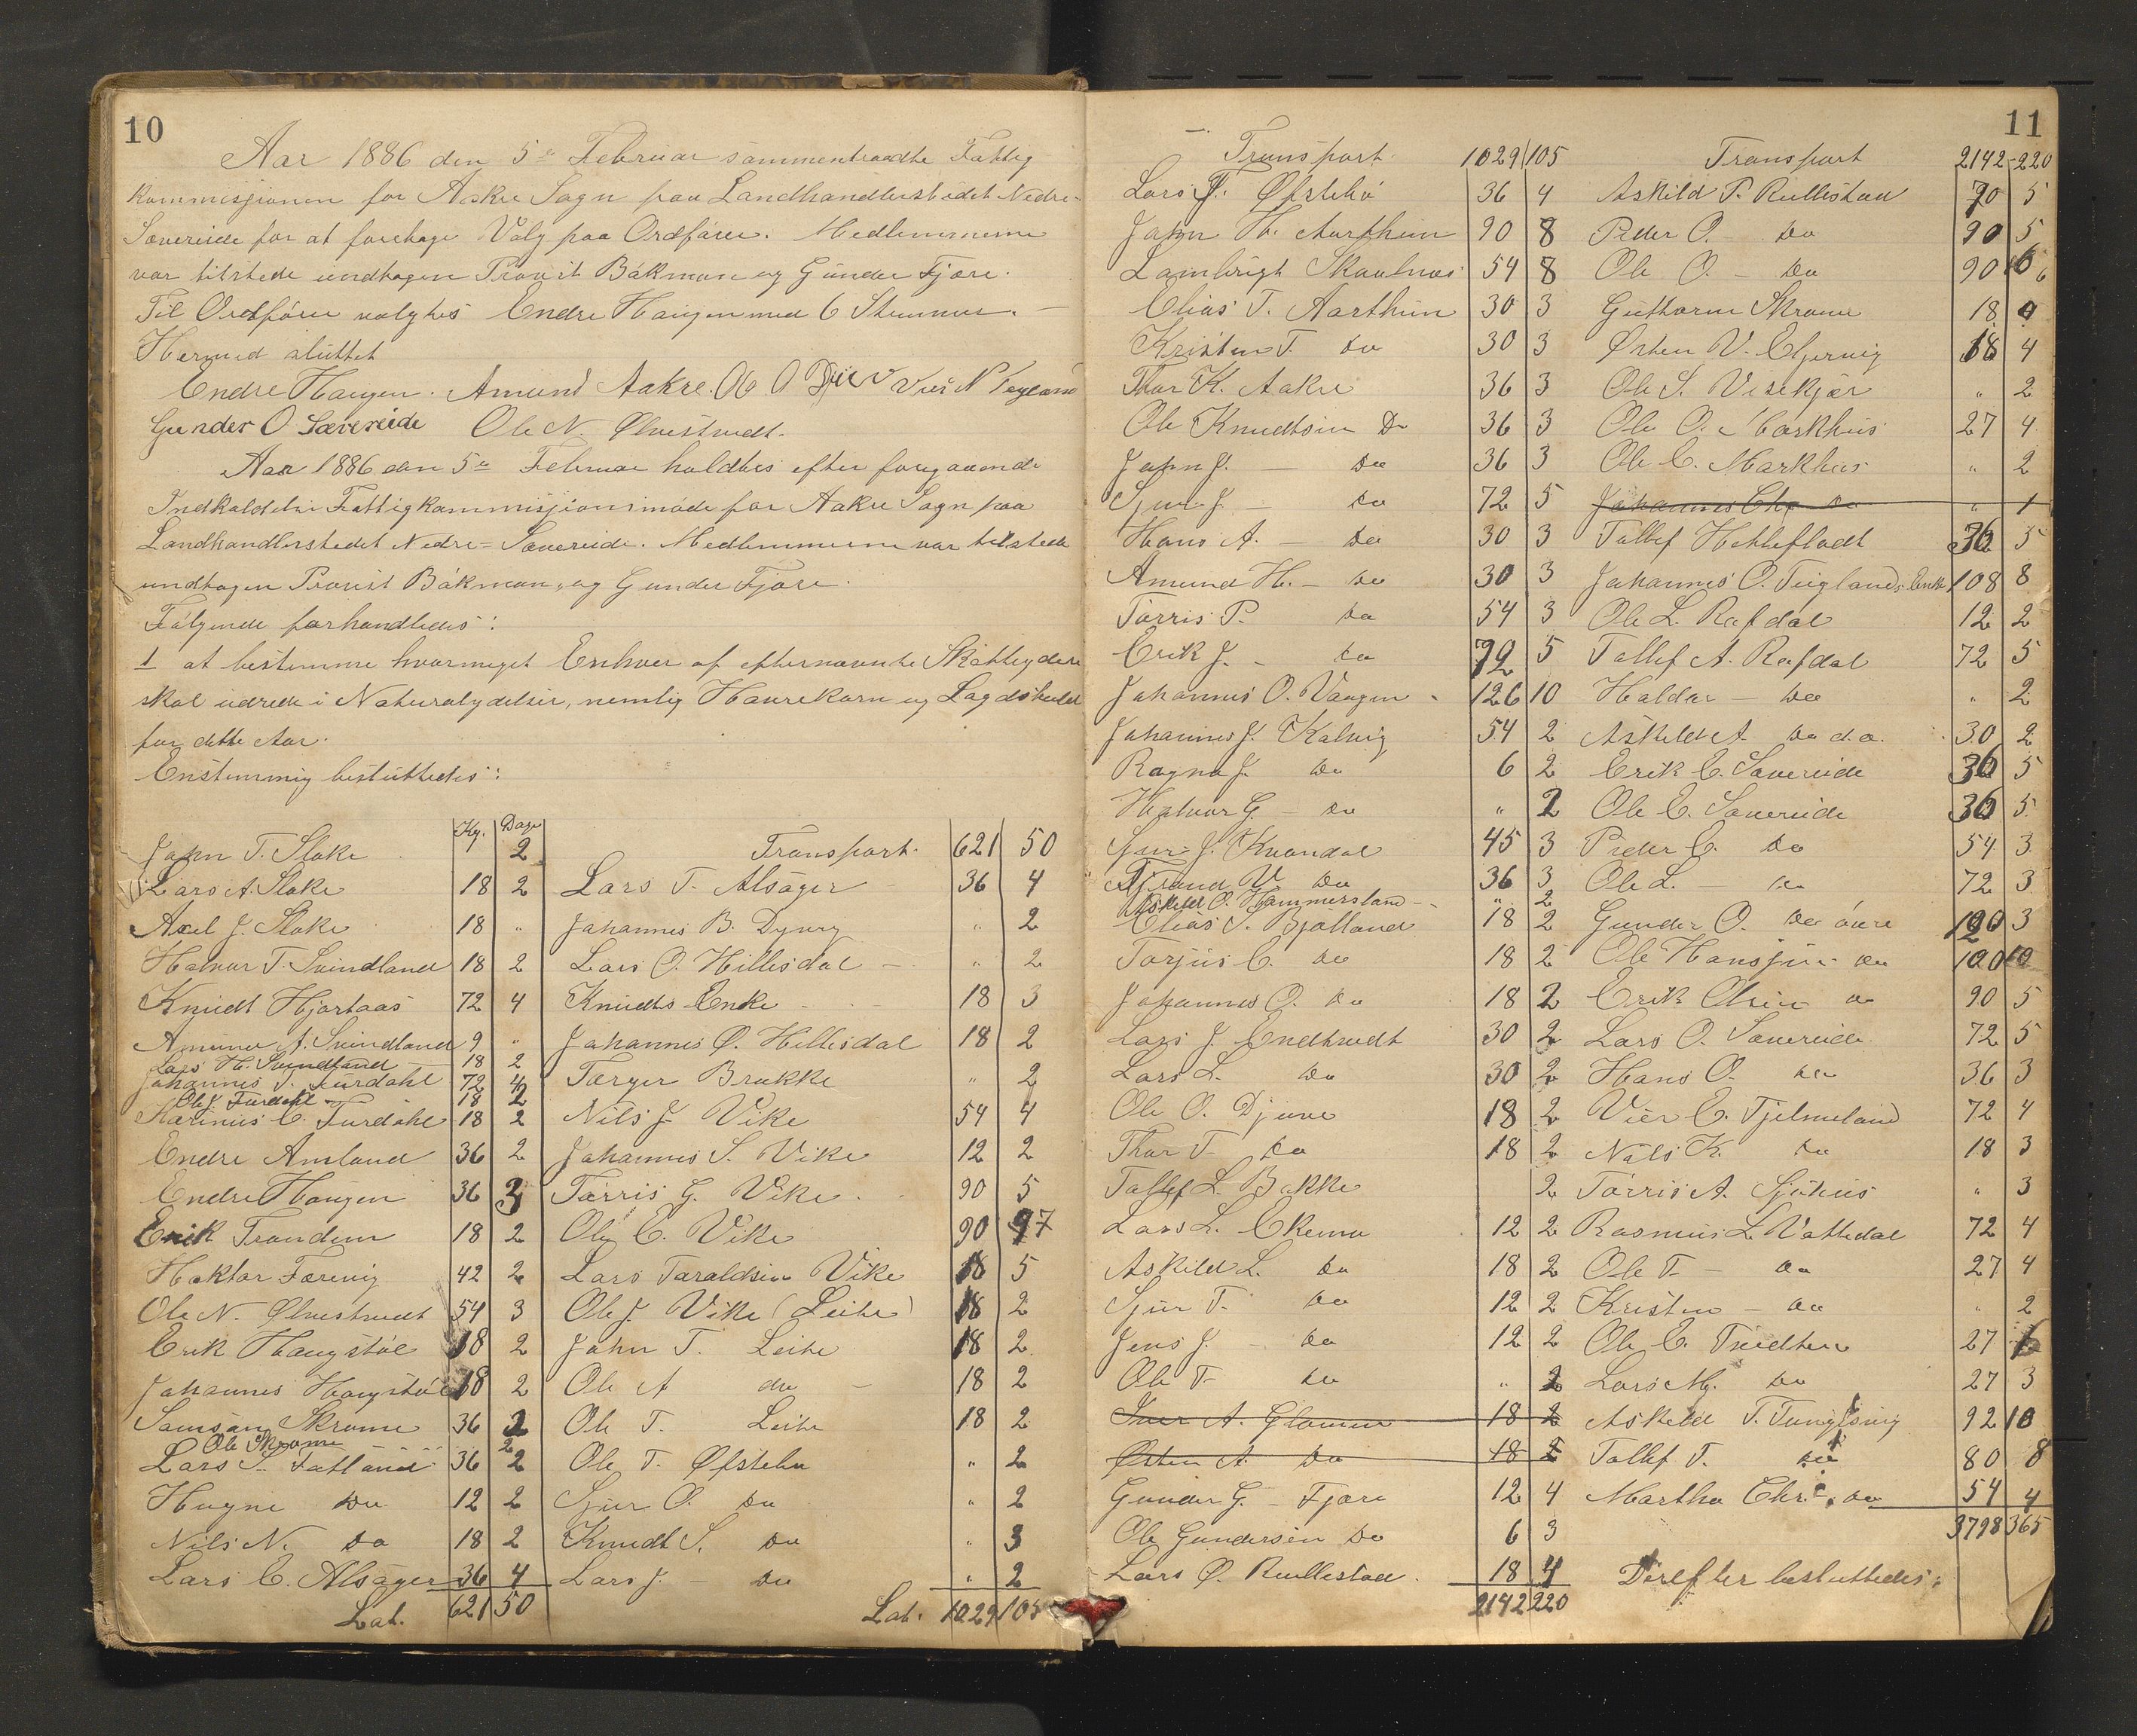 10
Aar 1886 den 5te Februar sammentraadte Fattig
kommissjonen for Aakre Sogn paa Landhandlerstedet Nedre-
Sævereide for at foretage Valg paa Ordfører. Medlemmerne
var tilstede undtagen Provst Bákman og Gunder Fjære.
Til Ordfører valgtes Endre Haugen med 6 Stemmer. —
Hermed sluttet
Endre Haugen. Amund Aakre. Ole O Vier N Tegland
Gunder O Sævereide Ole N. Ølvestvedt.
Aar 1886 den 5te Februar holdtes efter foregaaende
Indkaldelse Fattigkommissjonsmøde for Aakre Sogn paa
Landhandlerstedet Nedre=Sævereide. Medlemmerne var tilstede
undtagen Provst Bákman og Gunder Fjære.
Følgende forhandledes:
1 at bestemme hvormeget Enhver af efternævnte Skatteydere
skal udrede i Naturalydelser, nemlig Havrekorn og Lægdshold
for dette Aar.
Enstemmig besluttedes:
Kg. Dage
John T. Stoke 2
Lars A. Stoke 18 2
Axel J. Stoke 18 "
Halvor T. Svindland 18 2
Knudt Hjortaas 72 4
Amund A. Svindland 9 "
Lars H. Svindland 18 2
Johannes T. Turdahl 72 4
Ole J. Turdahl 18 2
Marinus C. Turdahl 18 2
Endre Amland 36 2
Endre Haugen 36 3
Erik Trondem 18 2
Hektor Færevig 42 2
Ole N. Ølvestvedt 54 3
Erik Haugstøl 18 2
Johannes Haugstøl 18 2
Samson Skrome 36 2
Ole Skrome 2
Lars S. Fatland 36 2
Hugne Do 12 2
Nils N. Do 18 2
Lars C. Alsåger 36 4
Lat. 621 50
Transport. 621 50
Lars T. Alsåger 36 4
Johannes B. Dyrvy " 2
Lars O. Hillesdal " 2
Knudts Enke 18 3
Johannes Ø. Hillesdal 18 2
Tørger Brekke " 2
Nils J. Vike 54 4
Johannes S. Vike 12 2
Tørris G. Vike 90 5
Ole C. Vike 90 7
Lars Taraldsen Vike 18 5
Ole J. Vike (Leite) 18 2
John T. Leite 18 2
Ole A do 18 2
Ole T. Leite 18 2
Ole T. Øfstebø " 2
Sjur O. Do " 2
Knudt S. Do " 3
Lars J. — Do " 2
Lat. 1029 105
11
Transport. 1029 105
Lars T. Øfstebø 36 4
John H. Aarthun 90 8
Lambrigt Skaalnæs 54 8
Elias T. Aarthun 30 3
Kristen T. Do 30 3
Thor K. Aakre 36 3
Ole Knudtsen Do 36 3
John J. — Do 36 3
Sjur J. — Do 72 5
Hans A. — Do 30 3
Amund H. — Do 30 3
Tørris P. Do 54 3
Erik J. — Do 72 5
Johannes O. Vaagen 126 10
Johannes J. Kalvig 54 2
Ragna J. Do 6 2
Halvor G — Do " 2
Sjur J. Kvandal 45 3
Trond V Do 36 3
Askild O. Hammersland " 2
Elias S. Bjølland 18 2
Torjus C. Do 18 2
Johannes O. Do 18 2
Lars J. Endtvedt 30 2
Lars L. Do 30 2
Ole O. Djuve 18 2
Thor T. Do 18 2
Tollef L. Bakke 2
Lars L. Ekemo 12 2
Askild L. Do 18 2
Sjur T. Do 12 2
Jens J. — Do 12 2
Ole T Do " 2
Iver A. Glomme 18 2
Østen A. Do 18 2
Gunder G. Fjære 12 4
Ole Gundersen Do 6 3
Lars Ø. Rullestad. 18 4
2142 220
Transport 2142-220
Askild P. Rullestad 70 5
Peder O. Do 90 5
Ole O. — Do 90 6
Guttorm Skrome 18 0
Østen V. Eljervig 18 4
Ole S. Visekjær " 2
Ole O. Markhus 27 4
Ole C. Markhus " 2
Johannes Chr Do " 1
Tollef Hetleflodt 36 5
Johannes O. Teiglands Enke 108 8
Ole L. Rafdal 12 2
Tollef A. Rafdal 72 5
Haldor — Do " 2
Askild A Do d.a. 30 2
Erik C. Sævereide 36 5
Ole C. Sævereide 36 5
Peder C. Do 54 3
Ole L. — Do 72 3
Gunder O. Do øvre 120 3
Ole Hansjin Do 100 10
Erik Olsen Do 90 5
Lars O. Sævereide 72 5
Hans O. Do 36 3
Vier C. Tjelmeland 72 4
Nils K. Do 18 3
Tørris A. Sjøhus " 3
Rasmus L Vattedal 72 4
Ole T — Do 27 4
Kristen — Do " 2
Ole C. Tvedten 27 6
Lars M. Do 27 3
Askild T. Tungesvig 92 10
Tollef T. Do 80 8
Martha Chr. Do 54 4
3798 365
Derefter besluttedes: